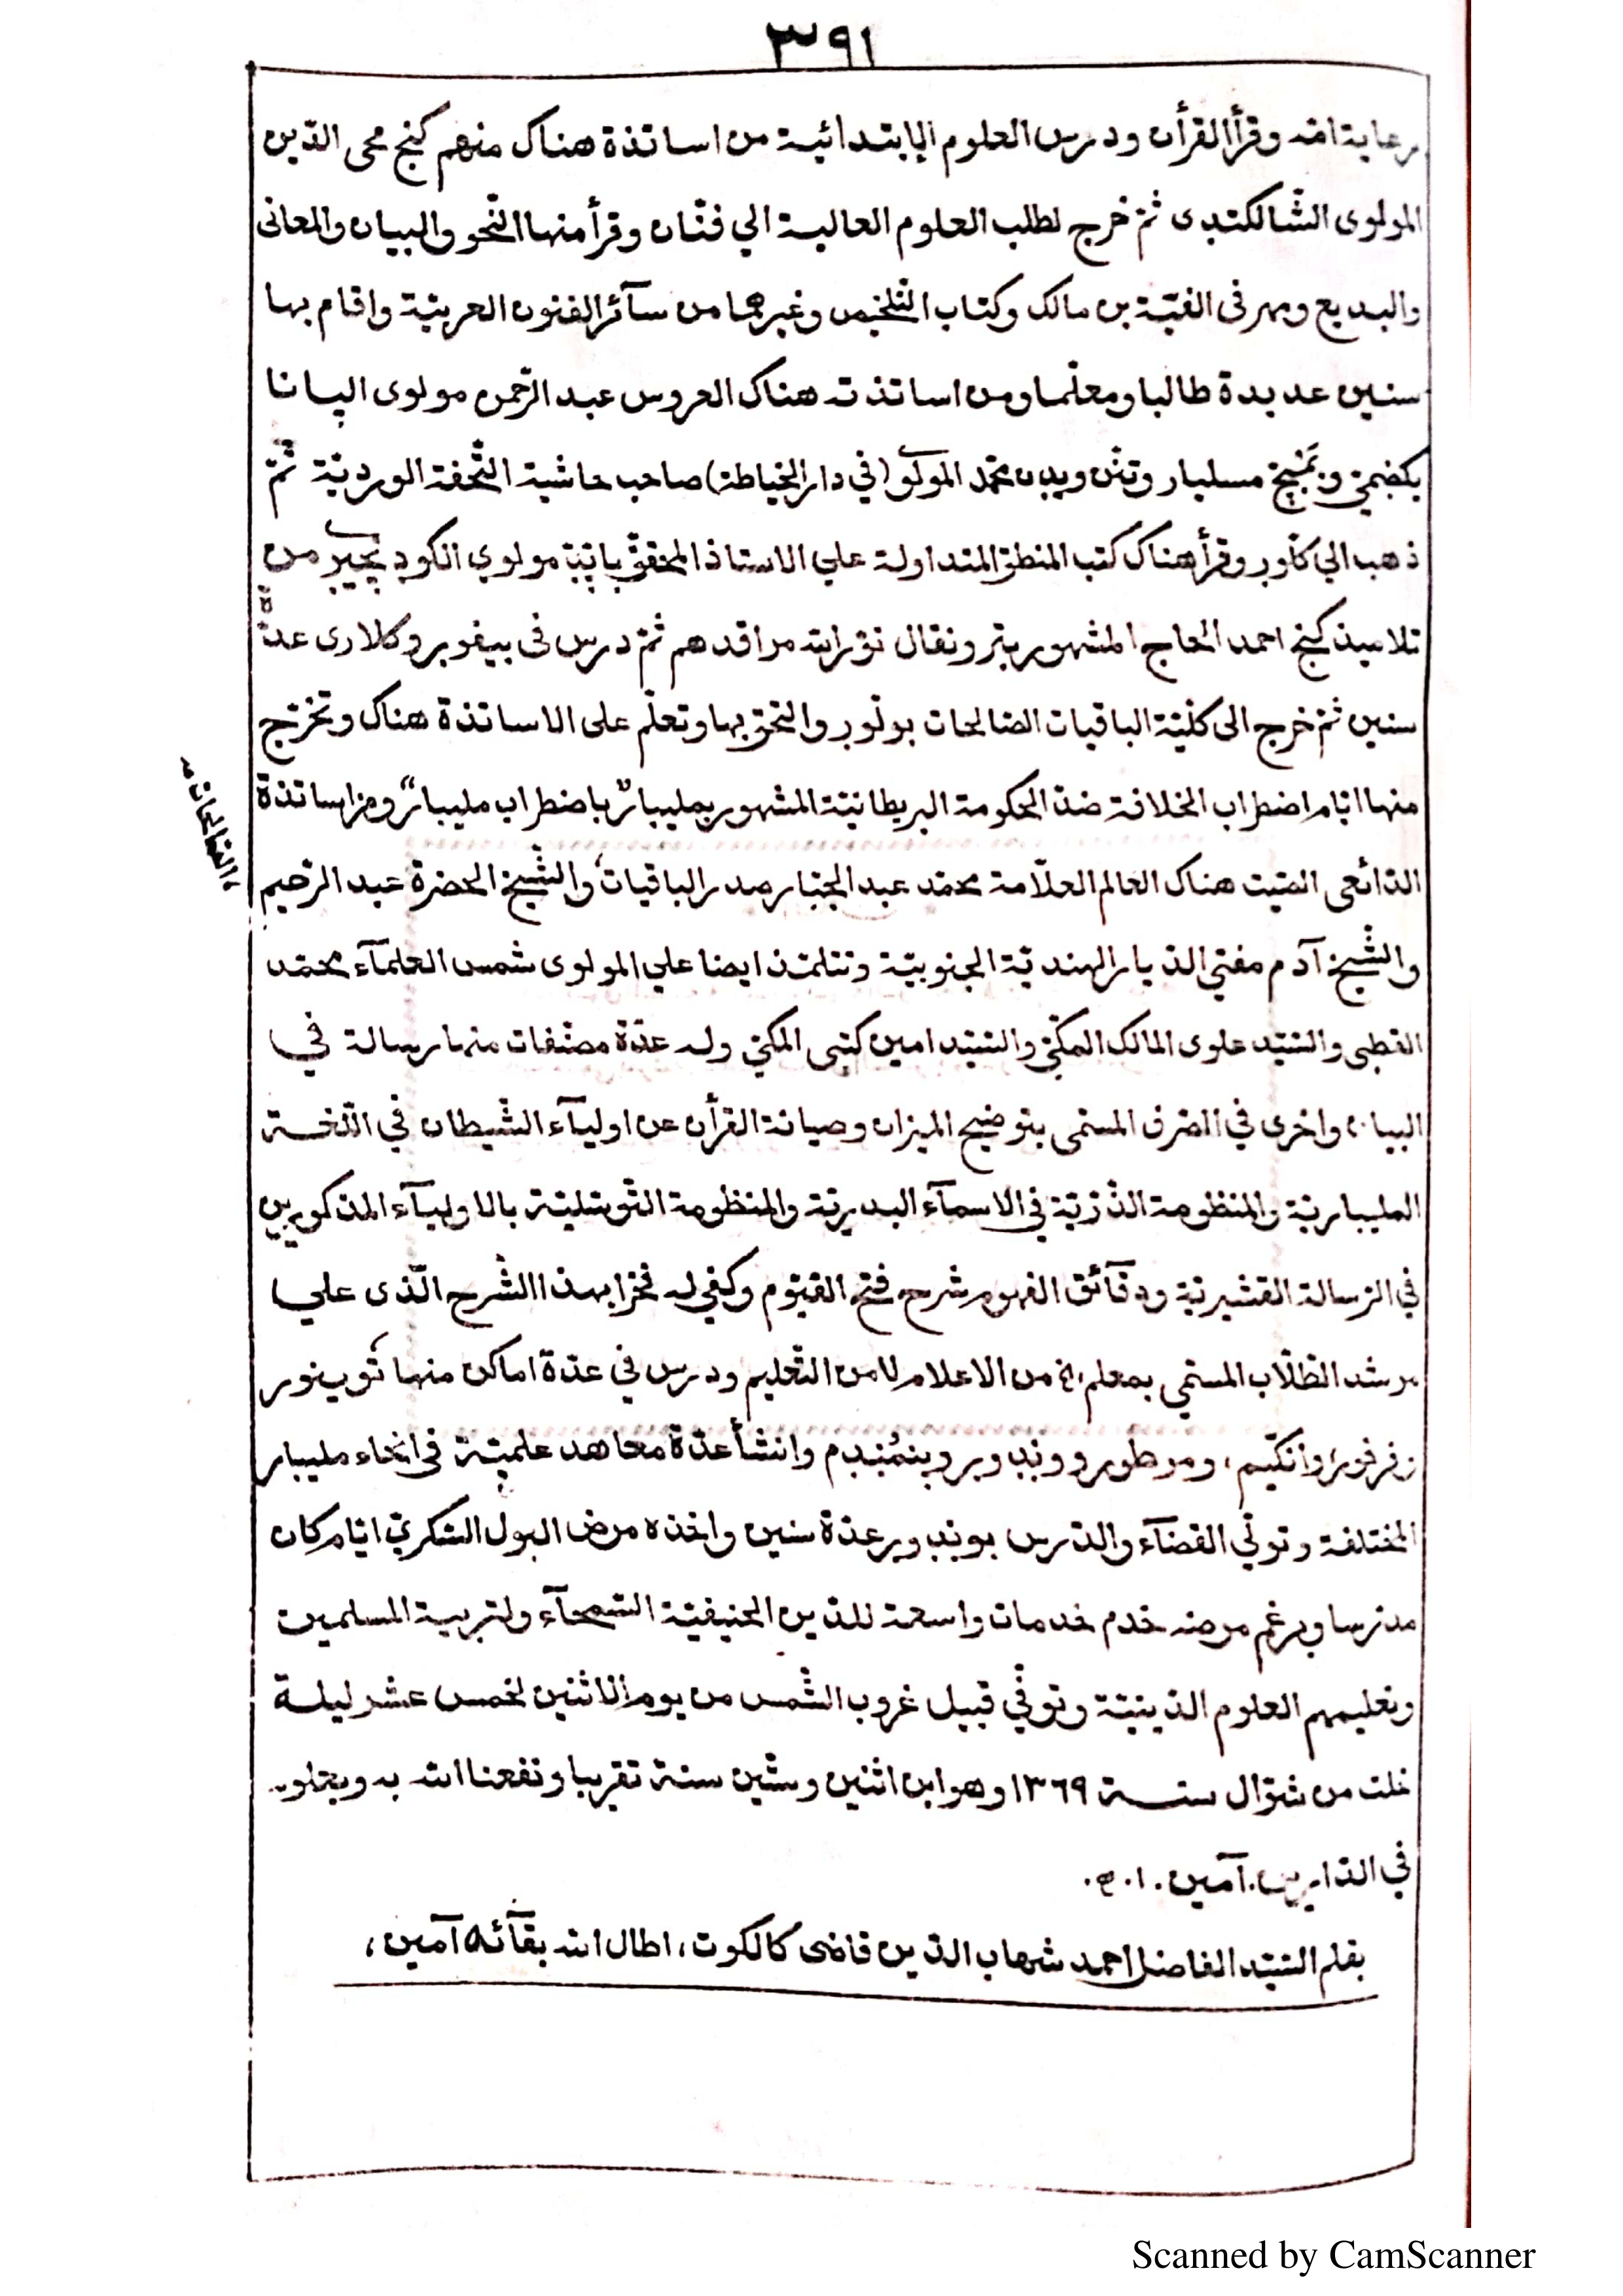 ٣٩١
برعاية امه وقرأ القرأن ودرس العلوم الإبتدائية من اساتذة هناك منهم كنج محى الدّين
المولوى الشّالكتدى ثمّ خرج لطلب العلوم العالية الي فنّان وقرأ منها النّحو والبيان والمعانى
والبديع ومهر فى الفيّة بن مالك وكتاب التّلخيص وغيرهما من سآئر الفنون العربيّة واقام بها
سنين عديدة طالبا ومعلّما ومن اساتذته هناك العروس عبد الرّحمن مولوى الپانا
مسليار محمّد المولوى (في دار الخياطة) صاحب حاشية التّحفة الورديّة ثمّ
ذهب الي وقرأ هناك كتب المنطق المتداولة علي الاستاذ المحقّق مولوي من
تلاميذ كنج احمد الحاج المشهور نوّر الله مراقدهم ثمّ درس فى بيفور وكلارى عدّة
سنين ثمّ خرج الى كلّيّة الباقيات الصّالحات بولّور والتحق بها وتعلّم على الاساتذة هناك وتخرّج
منها ايّام اضطراب الخلافة ضدّ الحكومة البريطانيّة المشهور بمليبار "باضطراب مليبار" ومن اساتذة
الذّائعى الصّيت هناك العالم العلّامة محمّد عبد الجبّار صدر الباقيات، والشّيخ الحضرة عبد الرّحيم
الصّالحات
والشّيخ آدم مفتي الدّيار الهنديّة الجنوبيّة وتتلمّذ ايضا علي المولوى شمس العلمآء محمّد
القطبى والسّيّد علوى المالك المكّيّ والسّيّد امين كتبى المكّيّ وله عدّة مصنّفات منها رسالة في
البيان واخرى في الصّرف المسمى بتوضيح الميزان وصيانة القرأن عن اوليآء الشّيطان في اللّغة
المليباريّة والمنظومة الدّرّيّة في الاسمآء البدريّة والمنظومة التّوسّليّة بالاوليآء المذكورين
في الرّسالة القشيريّة ودقآئق الفهوم شرح فتح القيّوم وكفي له فخرا بهذا الشّرح الّذى علي
مرشد الطّلّاب المسمّي بمعلم من الاعلام لا من التّعليم ودرس في عدّة اماكن منها
ومرطور ووندور وانشأ عدّة معاهد علميّة فى انحاء مليبار
المختلفة وتولّي القضآء والدّرس بوندور عدّة سنين واخذه مرض البول السّكريّ ايّام كان
مدرّسا وبرغم مرضه خدم خدمات واسعة للدّين الحنيفيّة السّمحآء ولتربية المسلمين
وتعليمهم العلوم الدّينيّة وتوفّي قبيل غروب الشّمس من يوم الاثنين لخمس عشر ليلة
خلت من شوّال سنة ١٣٦٩ وهو ابن اثنين وستّين سنة تقريبا ونفعنا الله به وبعلومه
في الدّارين. آمين. ا. ه.
بقلم السّيّد الفاضل احمد شهاب الدّين قاضى كالكوت، اطال الله بقآئه آمين،
Scanned by CamScanner